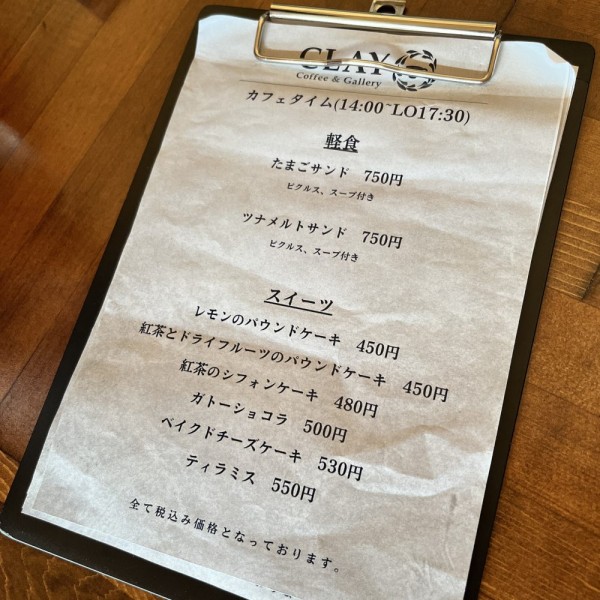 CLAY
Coffee & Gallery
カフェタイム(14:00~LO17:30)
軽食
たまごサンド 750円
ピクルス、スープ付き
ツナメルトサンド 750円
ピクルス、スープ付き
スイーツ
レモンのパウンドケーキ 450円
紅茶とドライフルーツのパウンドケーキ 450円
紅茶のシフォンケーキ 480円
ガトーショコラ 500円
ベイクドチーズケーキ 530円
ティラミス 550円
全て税込み価格となっております。